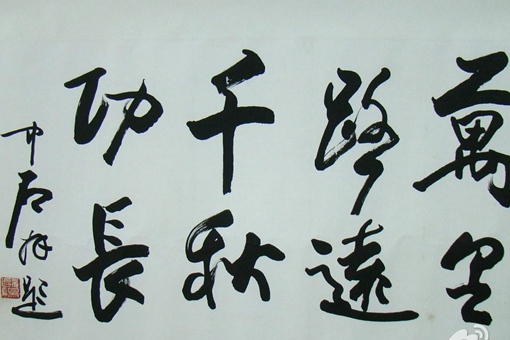 萬里
路遠
千秋
功長
石祥題